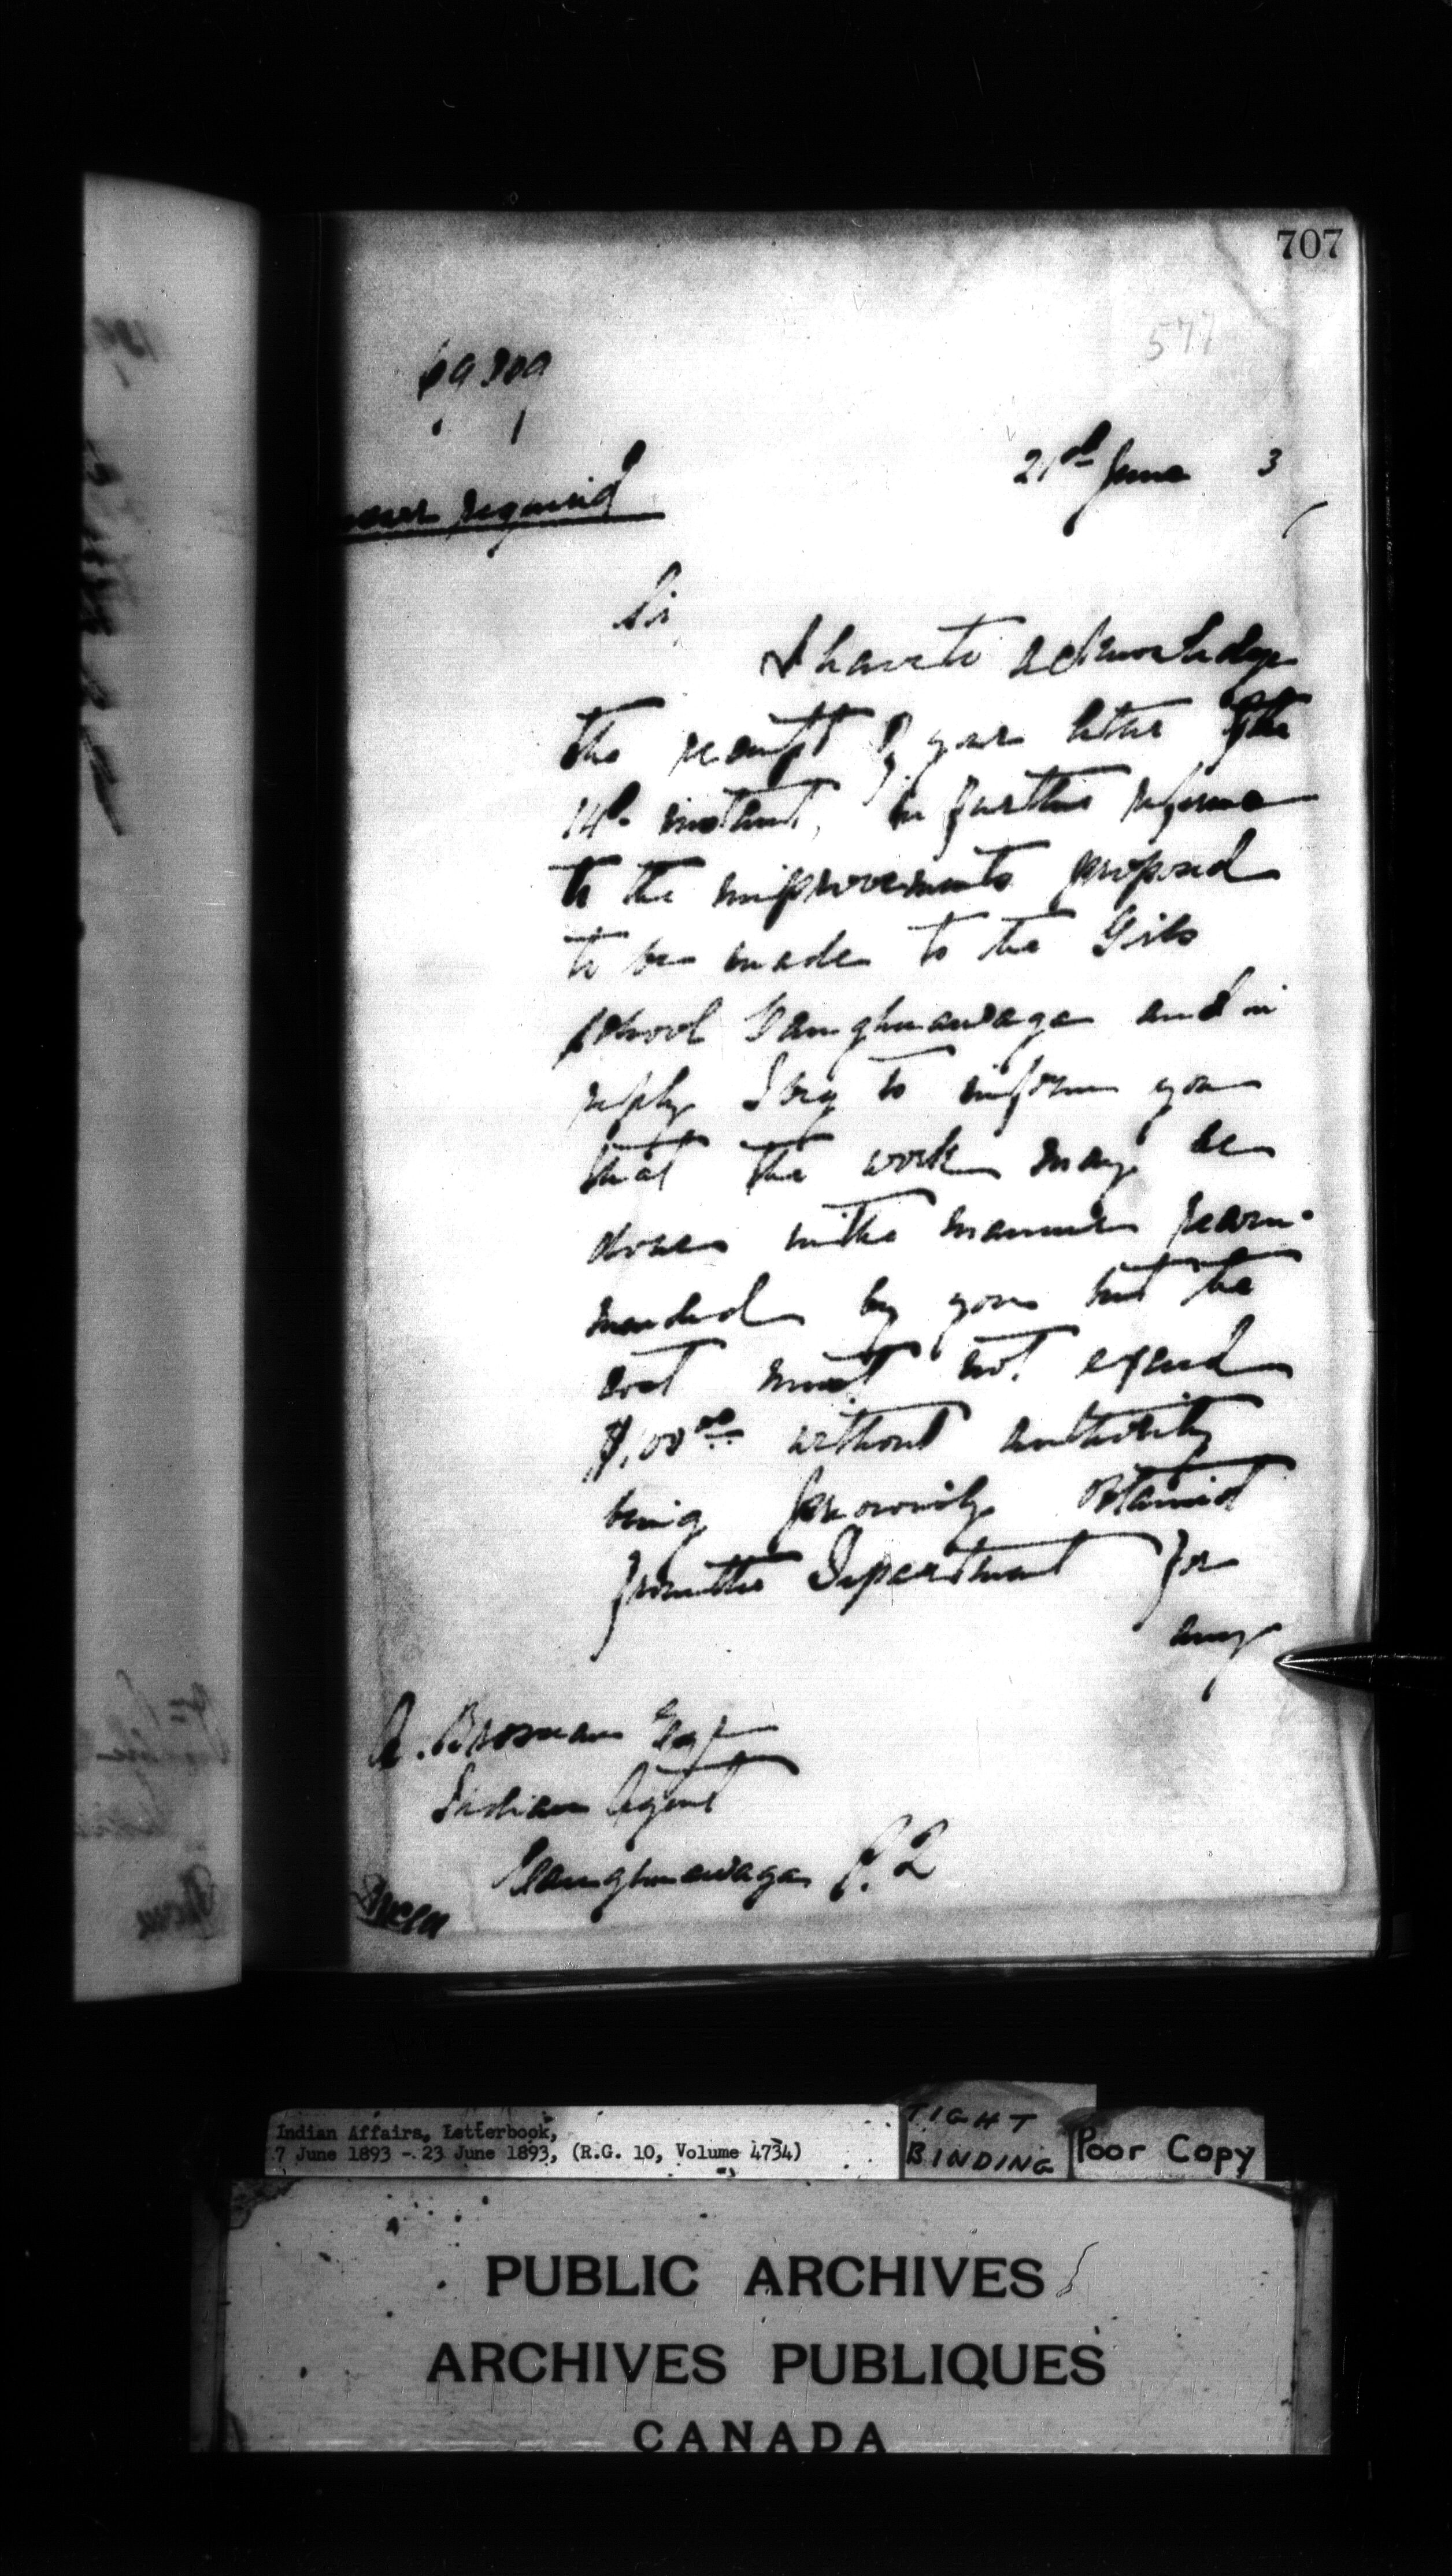 707
577
21st June 3
required
Sir
I have to acknowledge
the receipt of your letter of the
14th instant, in further reference
to the improvements proposed
to be made to the Girls
school Caughnawaga and in
reply I beg to inform you
that the work may be
done in the manner recom-
mended by you but the
cost must not exceed
$100.00 without authority
being previously obtained
from the Department for
any
A. Brosseau Esqr
Indian Agent
Caughnawaga P.Q
Indian Affairs, Letterbook,
7 June 1893 - 23 June 1893, (R.G. 10, Volume 4734)
TIGHT
BINDING
Poor Copy
PUBLIC ARCHIVES
ARCHIVES PUBLIQUES
CANADA